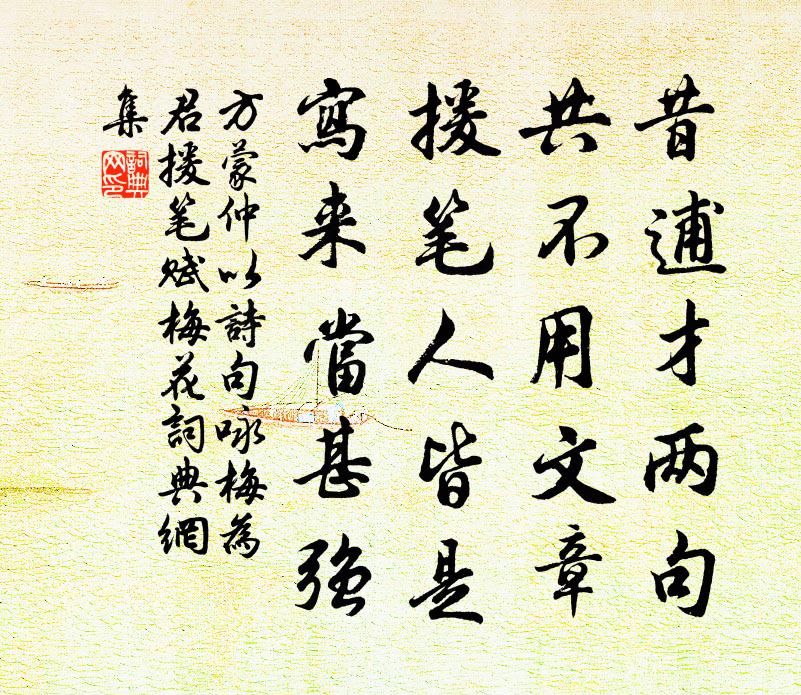 昔逋才两句
共不用文章
援笔人皆是
寫来當甚強
方蒙仲以詩句咏梅為
君援笔赋梅花詞典網
集
詞典网印